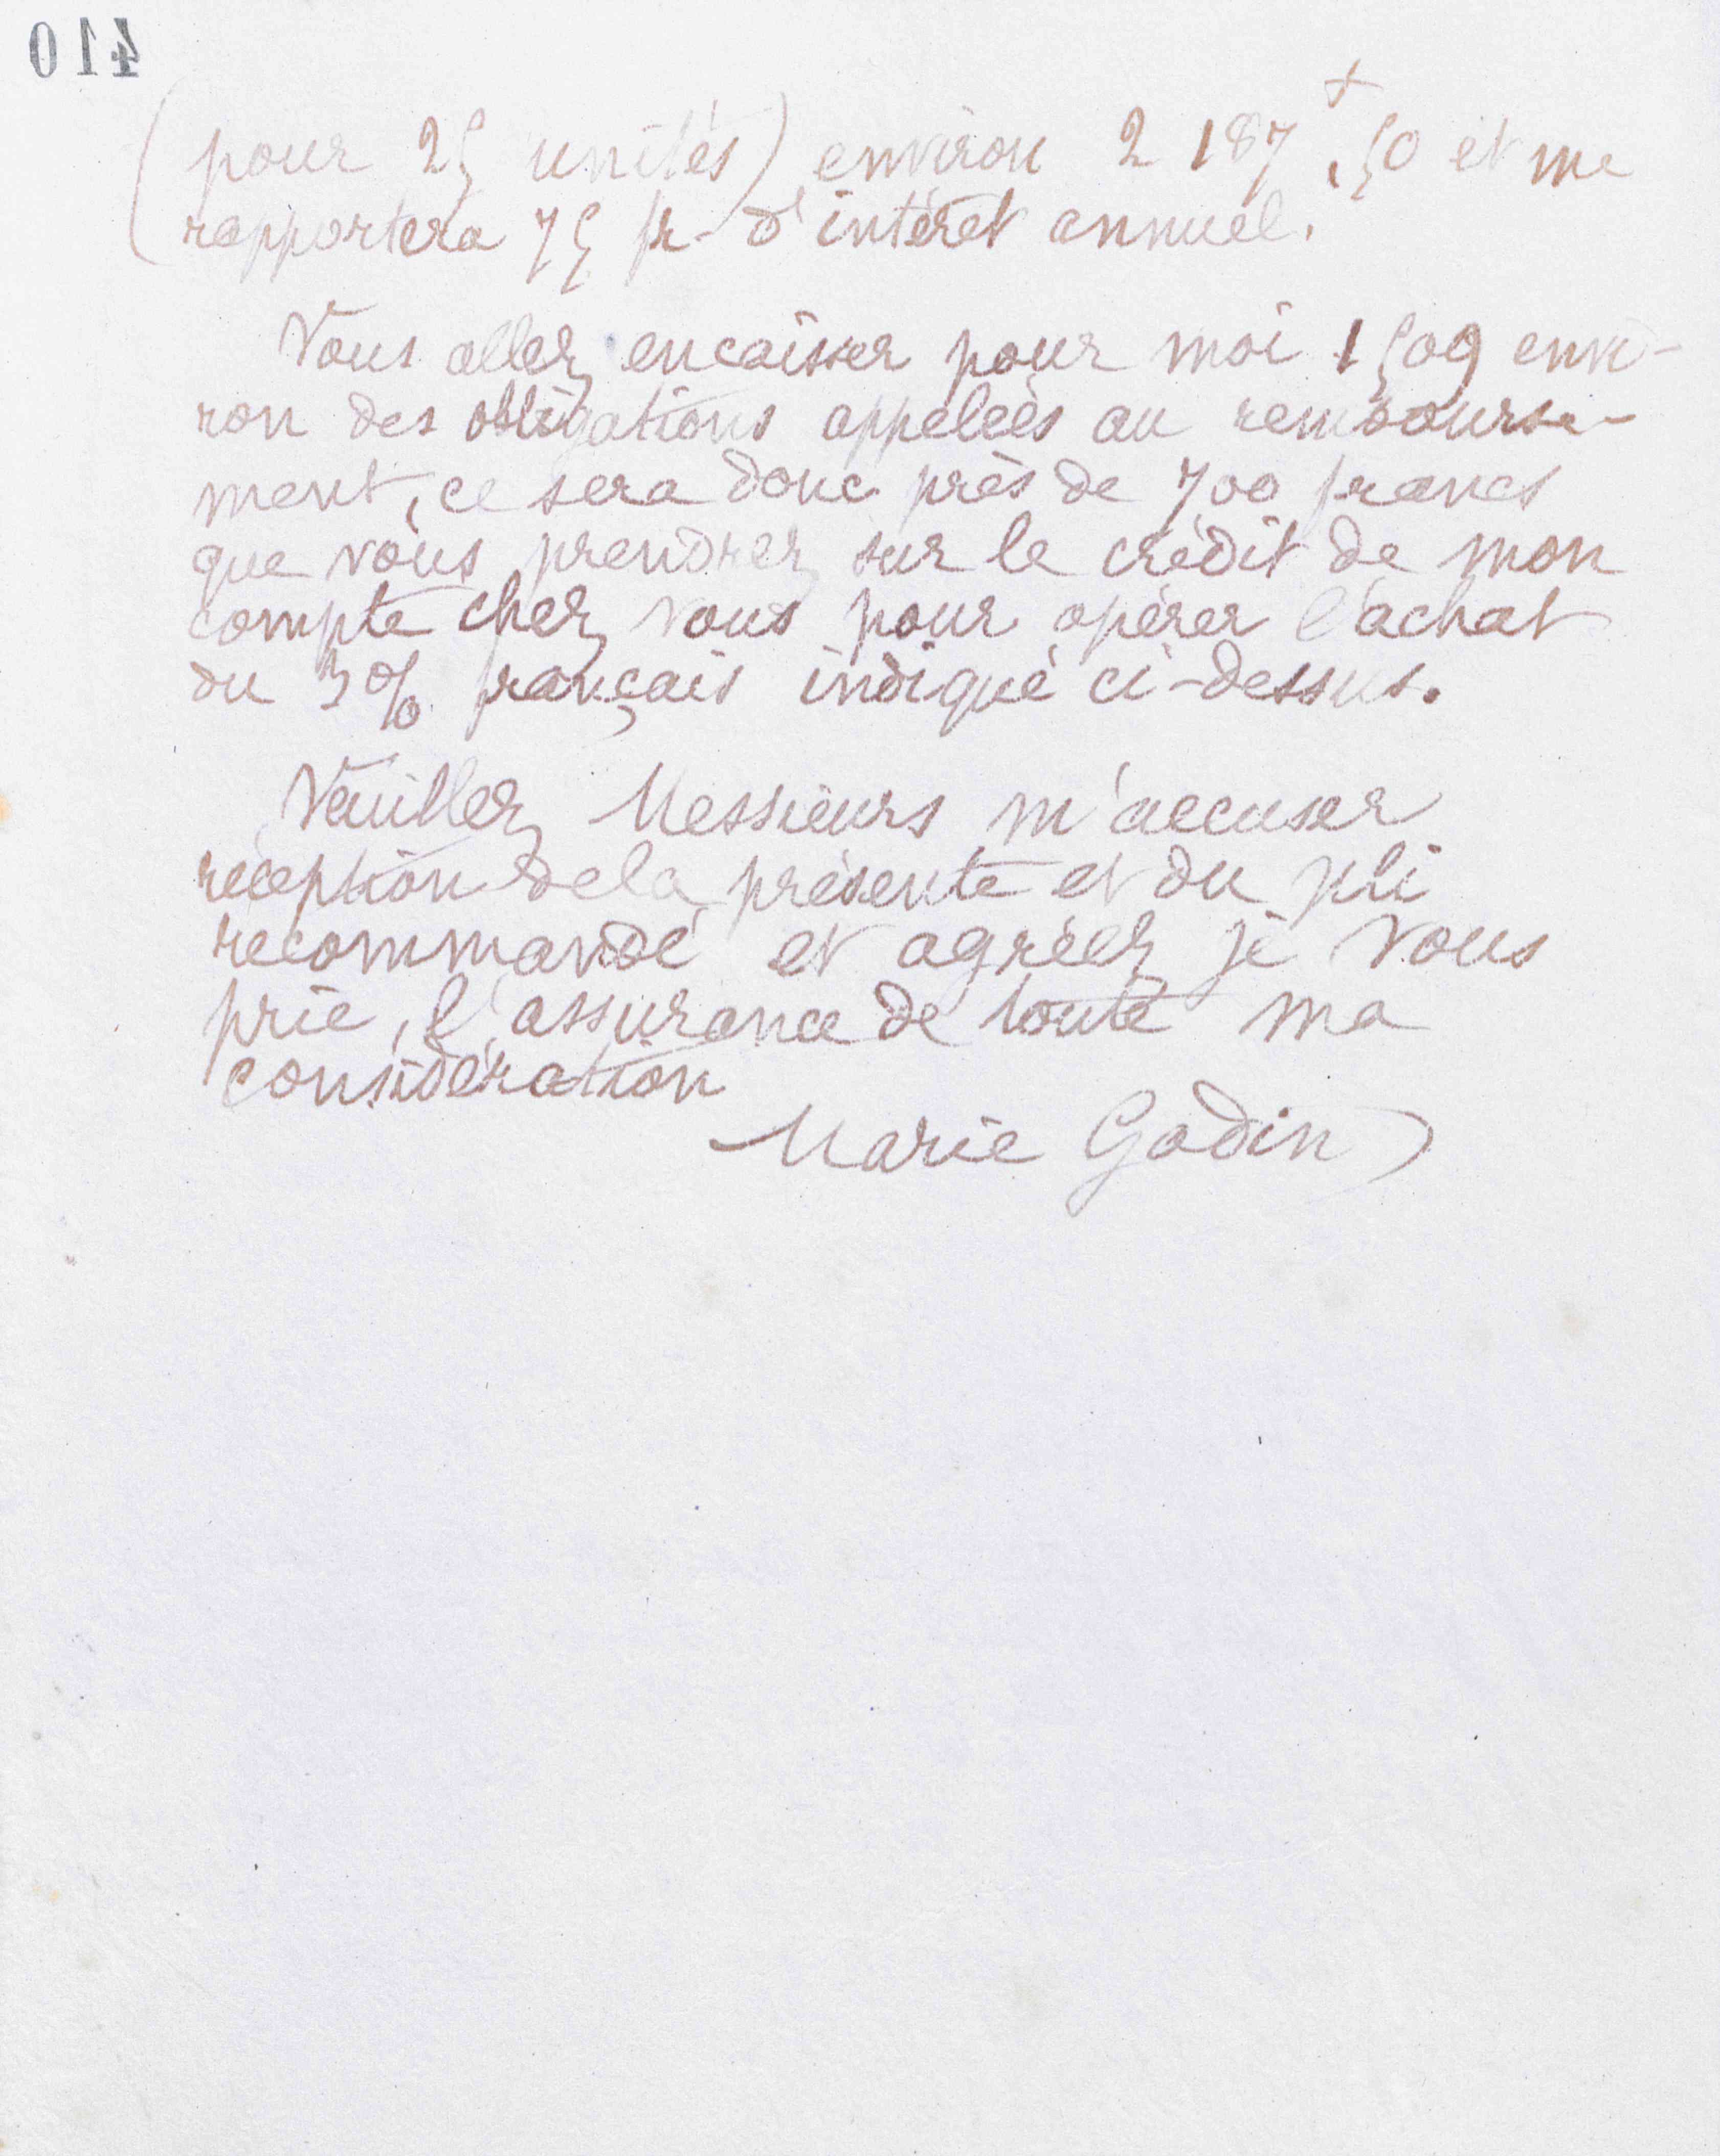 410
(pour 25 unités) environ 2 187 f, 50 et me
rapportera 75 fr. d'intérêt annuel.
Vous allez encaisser pour moi 1509 envi-
ron des obligations appelées au rembourse-
ment, ce sera donc près de 700 francs
que vous prendrez sur le crédit de mon
compte chez vous pour opérer l'achat
du 3% français indiqué ci-dessus.
Veuillez Messieurs m'accuser
réception de la présente et du pli
recommandé et agréez je vous
prie, l'assurance de toute ma
considération
Marie Godin